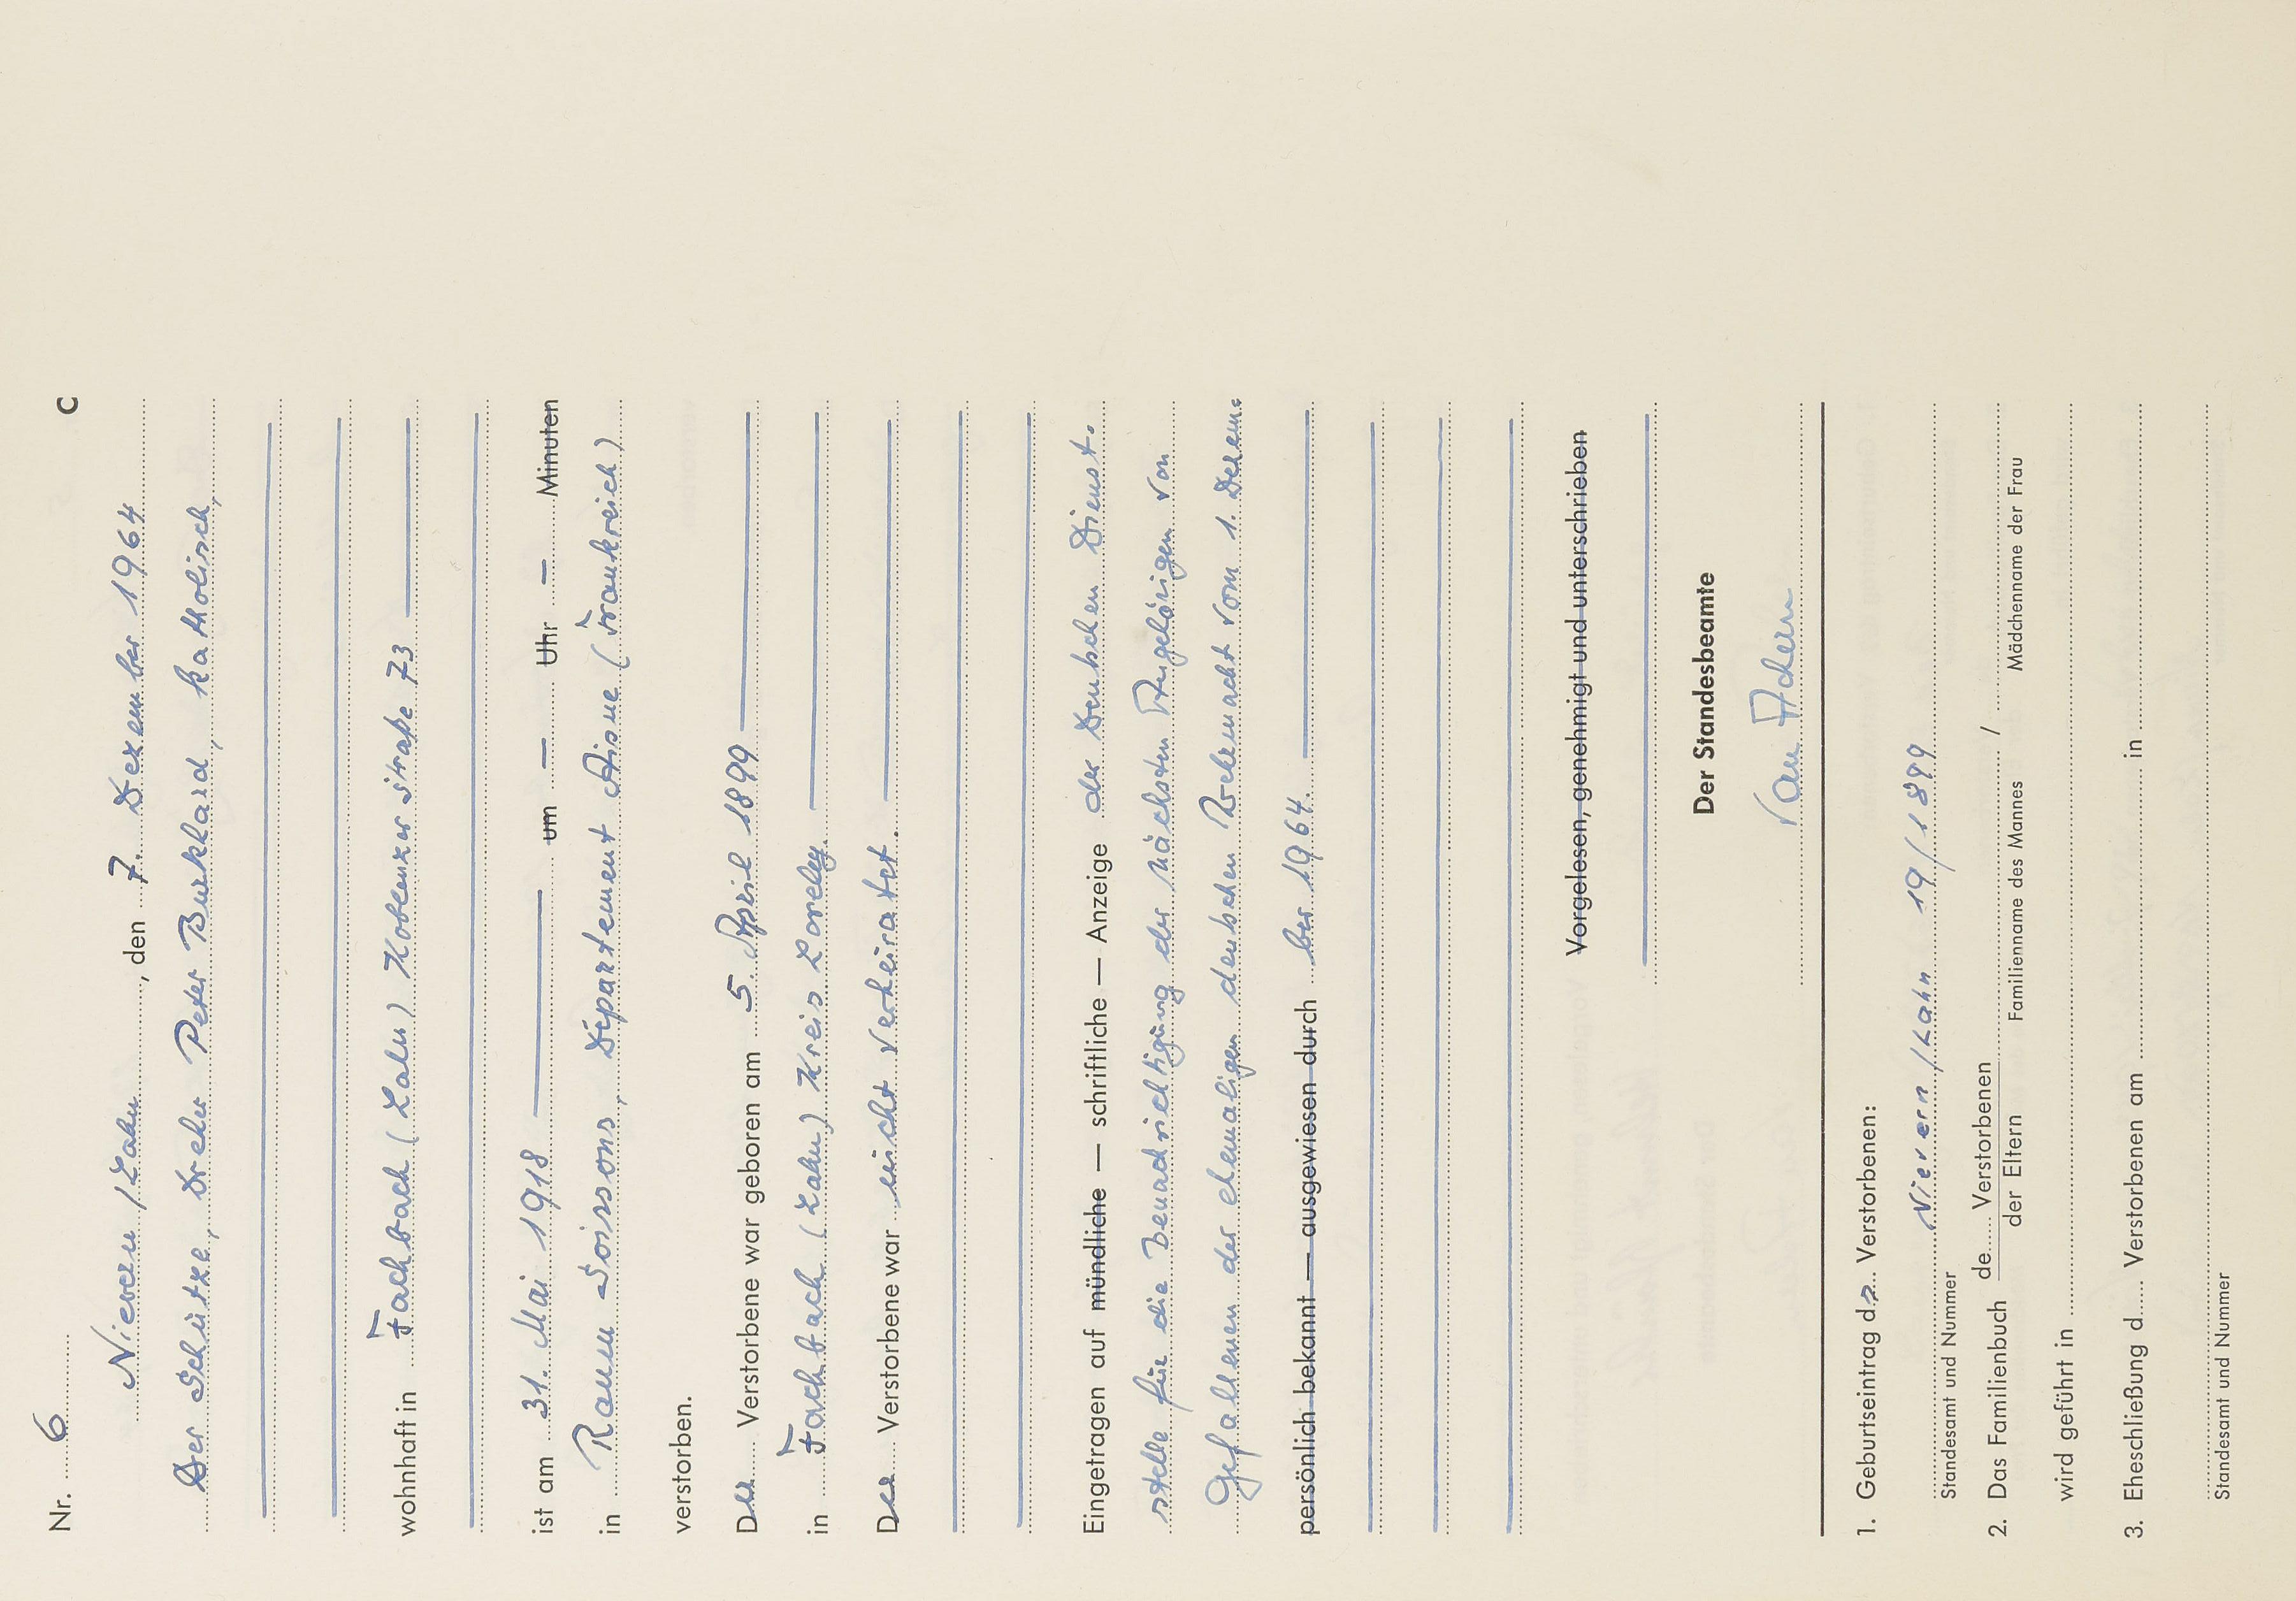 Nr. 6 C
Nievern/Lahn, den 7. Dezember 1964
Der Schütze, Dreher Peter Burkhard, katholisch,
wohnhaft in Fachbach (Lahn) Koblenzer Straße 73
ist am 31. Mai 1918 um — Uhr — Minuten
in Raum Soissons, Departement Aisne (Frankreich)
verstorben.
Der Verstorbene war geboren am 5. April 1899
in Fachbach (Lahn) Kreis Loreley.
Der Verstorbene war nicht verheiratet.
Eingetragen auf mündliche — schriftliche — Anzeige der Deutschen Dienst-
stelle für die Benachrichtigung der nächsten Angehörigen von
Gefallenen der ehemaligen deutschen Wehrmacht vom 1. Dezem-
persönlich bekannt — ausgewiesen durch ber 1964.
Vorgelesen, genehmigt und unterschrieben
Der Standesbeamte
1. Geburtseintrag des Verstorbenen:
Nievern/Lahn 19/1899
Standesamt und Nummer
2. Das Familienbuch de Verstorbenen / der Eltern /
Familienname des Mannes Mädchenname der Frau
wird geführt in
3. Eheschließung d Verstorbenen am in
Standesamt und Nummer